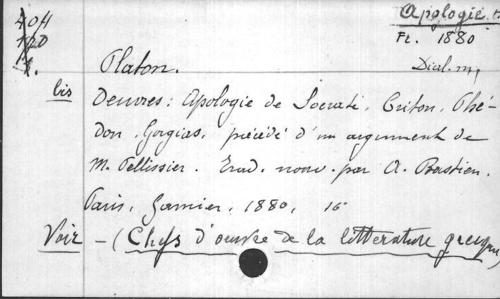 404
Apologie.
Fr. 1880
Platon.
Dial. m,
bis
Oeuvres: Apologie de Socrate. Criton. Phé-
don. Gorgias. précédé d'un argument de
M. Pellissier. Trad. nouv. par A. Bastien.
Paris. Garnier. 1880, 16°
Voir - (Chefs d'oeuvre de la littérature grecque)